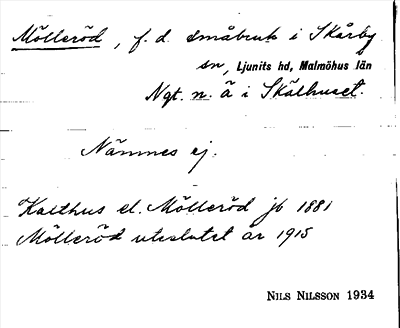 Mölleröd, f. d. småbruk i Skårby
sn, Ljunits hd, Malmöhus län
Ngt. n. ä i Skälhuset.
Nämnes ej.
Kalthus el. Mölleröd jb 1881
Mölleröd uteslutet är 1915
NILS NILSSON 1934